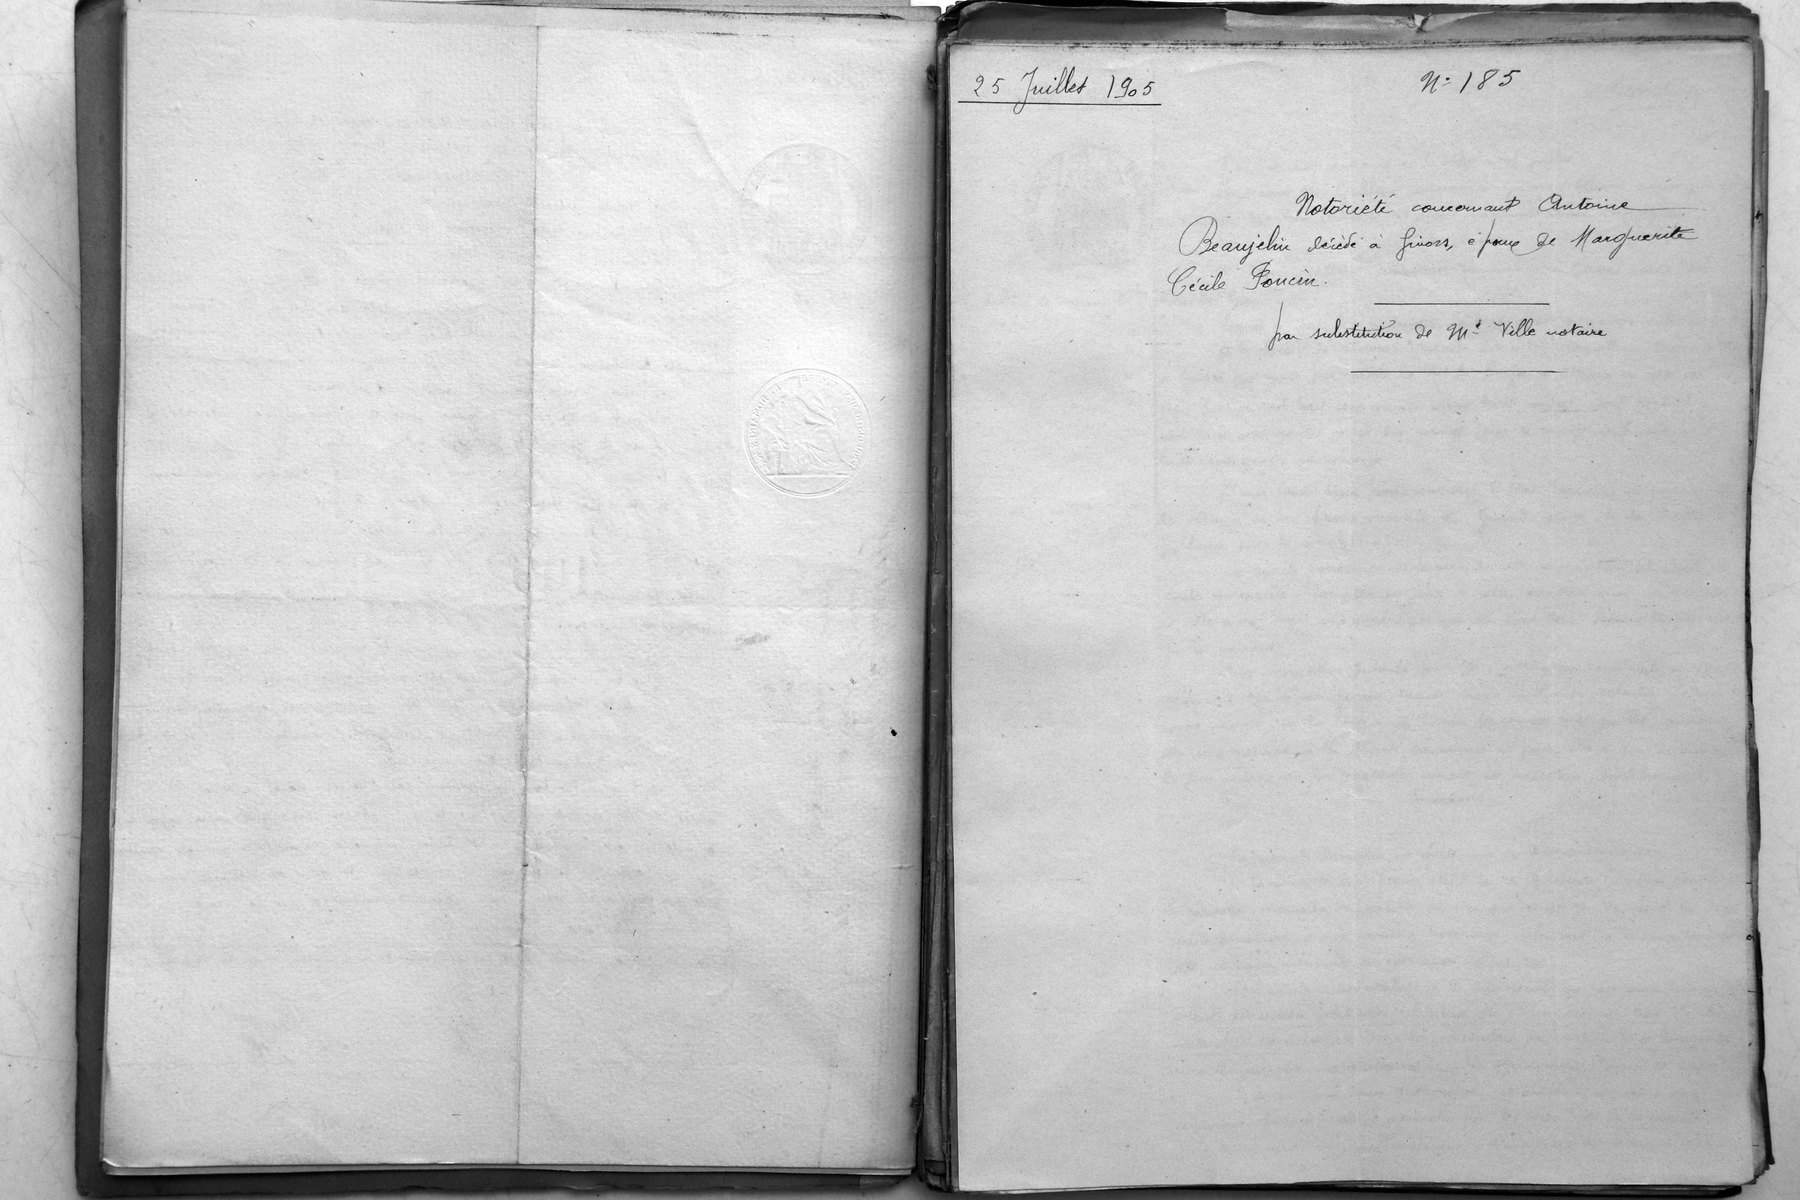 25 Juillet 1905
N° 185
Notoriété concernant Antoine
Beaujelin décédé à Givors, époux de Marguerite
Cécile Poncin.
par substitution de Me Ville notaire